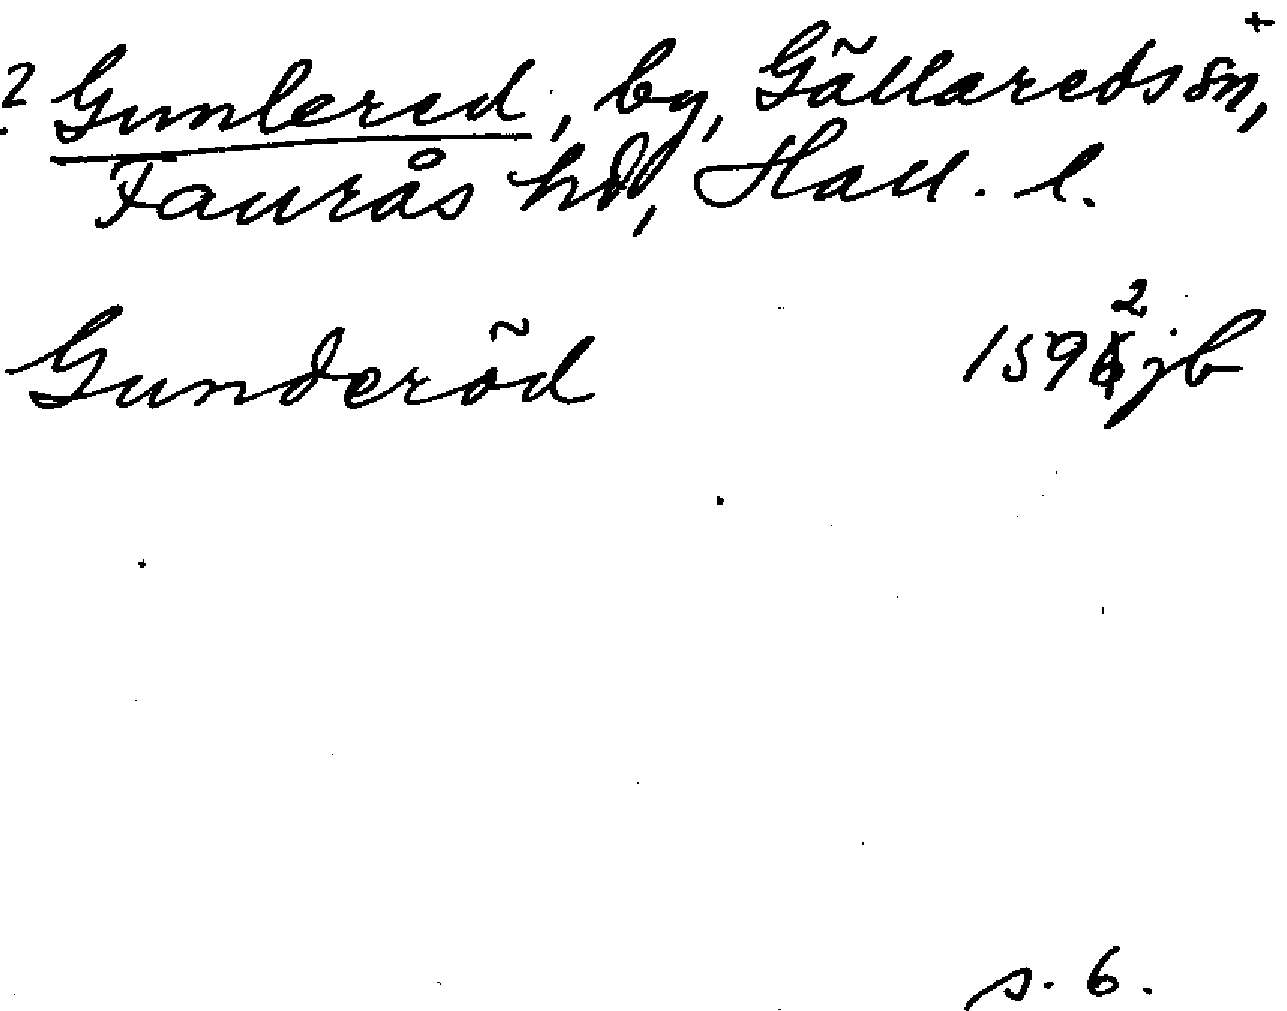 ? Gunlered, by, Gällareds sn, +
Faurås hd, Hall. l.
Gunderöd 1592 jb
s. 6.